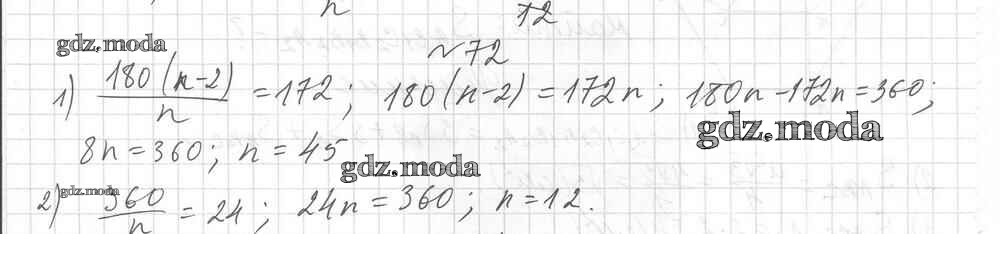 n 12
№72
gdz.moda
1) 180(n-2)/n = 172; 180(n-2) = 172n; 180n - 172n = 360;
gdz.moda
8n = 360; n = 45
gdz.moda
gdz.moda
2) 360/n = 24; 24n = 360; n = 12.